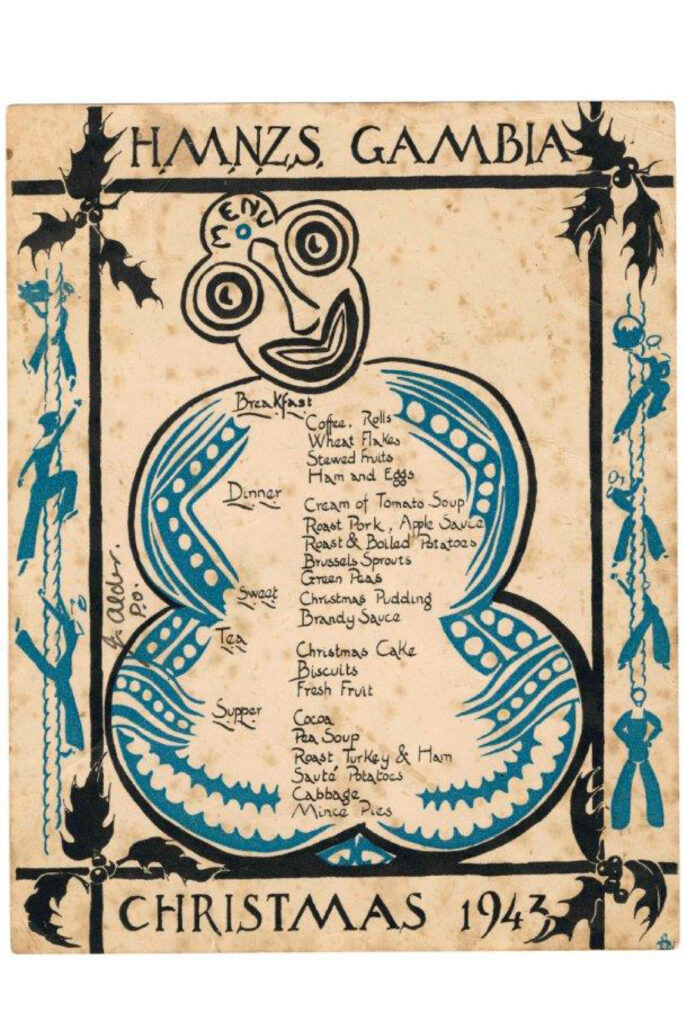 H.M.N.Z.S. GAMBIA
MENU
Breakfast
Coffee, Rolls
Wheat Flakes
Stewed Fruits
Ham and Eggs
Dinner
Cream of Tomato Soup
Roast Pork, Apple Sauce
Roast & Boiled Potatoes
Brussels Sprouts
Green Peas
Sweet
Christmas Pudding
Brandy Sauce
Tea
Christmas Cake
Biscuits
Fresh Fruit
Supper
Cocoa
Pea Soup
Roast Turkey & Ham
Sauté Potatoes
Cabbage
Mince Pies
Alder.
P.O.
CHRISTMAS 1943